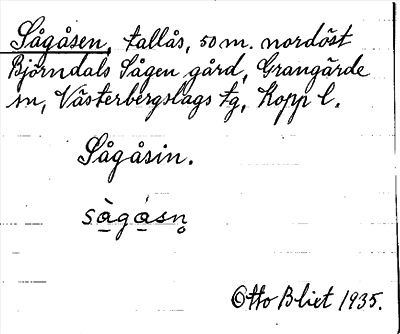 Sågåsen, tallås, 50 m. nordöst
Björndals Sågen gård, Grangärde
sn, Västerbergslags tg, Kopp l.
Sågåsin.
sàgásn̥
Otto Blixt 1935.